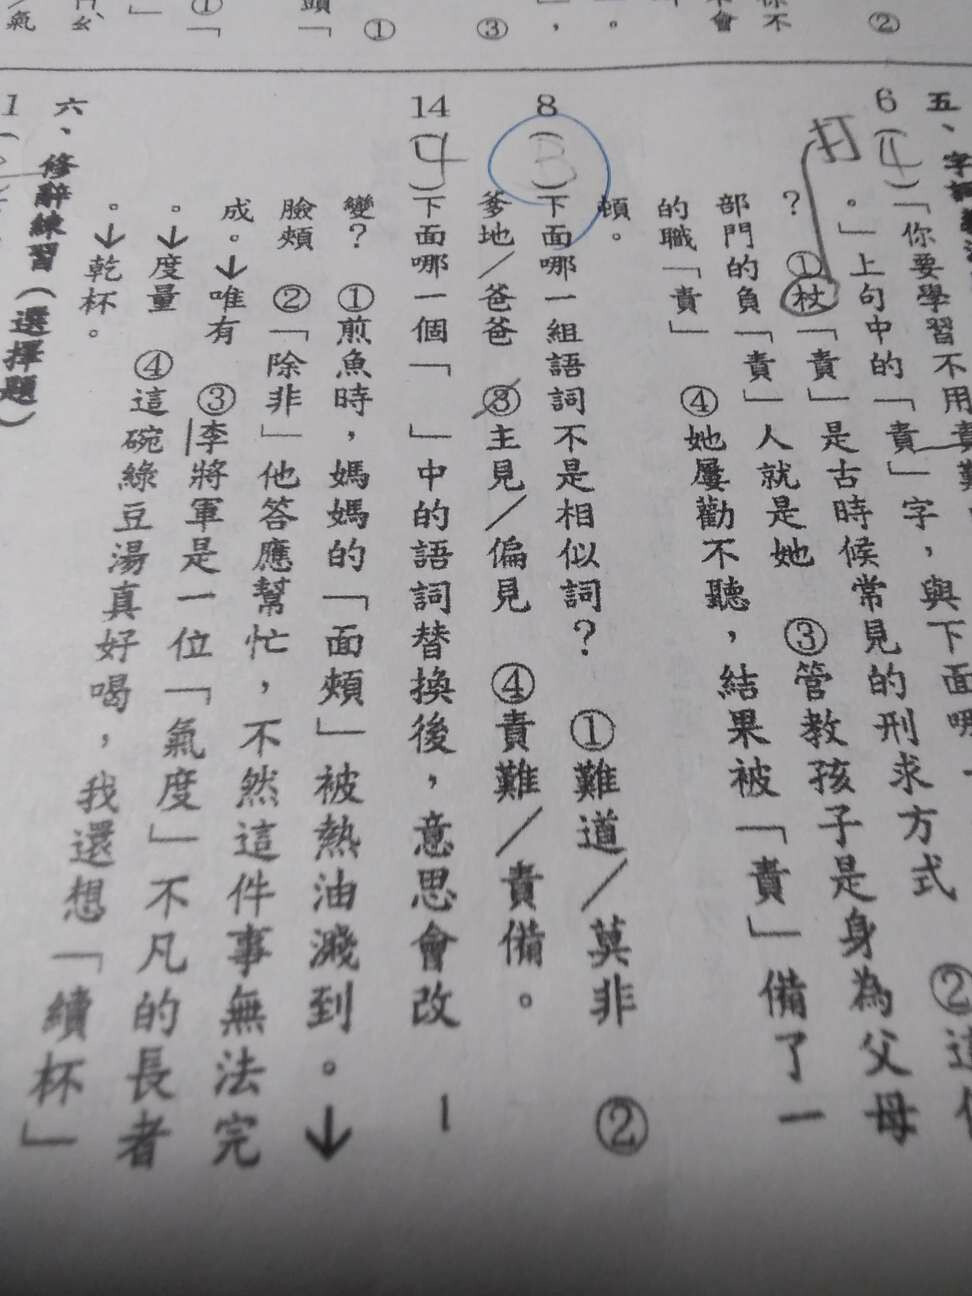 五、字
6(4)「你要學習不用責難
。」上句中的「責」字,與下面哪一
? ①杖「責」是古時候常見的刑求方式 ②這
打
部門的負「責」人就是她 ③管教孩子是身為父母
的職「責」 ④她屢勸不聽,結果被「責」備了一
頓。
8(3)下面哪一組語詞不是相似詞? ①難道/莫非 ②
爹地/爸爸 ③主見/偏見 ④責難/責備。
14(4)下面哪一個「 」中的語詞替換後,意思會改
變? ①煎魚時,媽媽的「面頰」被熱油濺到。↓
臉頰 ②「除非」他答應幫忙,不然這件事無法完
成。↓唯有 ③李將軍是一位「氣度」不凡的長者
。↓度量 ④這碗綠豆湯真好喝,我還想「續杯」
。↓乾杯。
六、修辭練習(選擇題)
1(